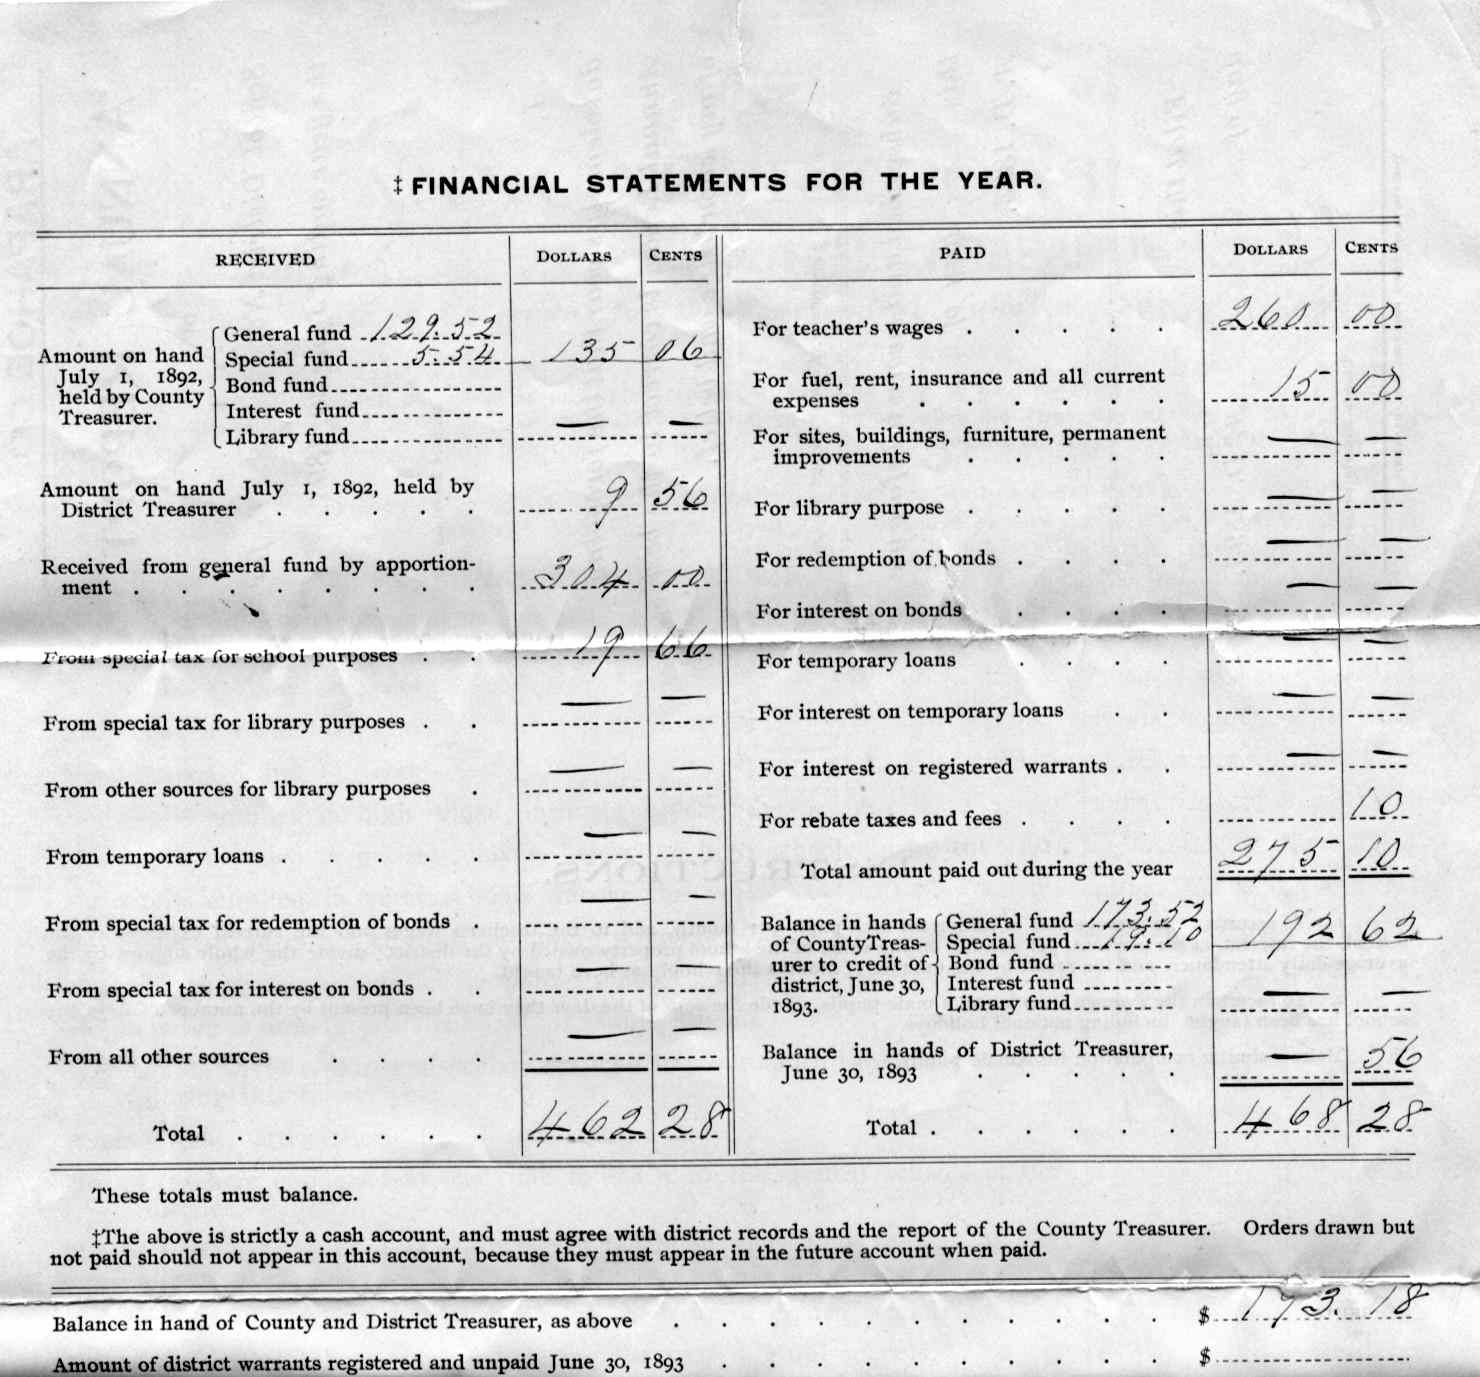 ‡ FINANCIAL STATEMENTS FOR THE YEAR.
RECEIVED DOLLARS CENTS
Amount on hand July 1, 1892, held by County Treasurer.
General fund 129.52
Special fund 5.54 135 06
Bond fund
Interest fund
Library fund — —
Amount on hand July 1, 1892, held by
District Treasurer . . . . . 9 56
Received from general fund by apportion-
ment . . . . . . . . 304 00
From special tax for school purposes . . 19 66
From special tax for library purposes . . — —
From other sources for library purposes . — —
From temporary loans . . . . . — —
From special tax for redemption of bonds . — —
From special tax for interest on bonds . . — —
From all other sources . . . . — —
Total . . . . . . 462 28
PAID DOLLARS CENTS
For teacher's wages . . . . . 260 00
For fuel, rent, insurance and all current
expenses . . . . . . 15 00
For sites, buildings, furniture, permanent
improvements . . . . . — —
For library purpose . . . . . — —
For redemption of bonds . . . . — —
For interest on bonds . . . . — —
For temporary loans . . . . — —
For interest on temporary loans . . — —
For interest on registered warrants . . — —
For rebate taxes and fees . . . . 10
Total amount paid out during the year 275 10
Balance in hands of County Treasurer to credit of district, June 30, 1893.
General fund 173.52
Special fund 19.10 192 62
Bond fund
Interest fund
Library fund — —
Balance in hands of District Treasurer,
June 30, 1893 . . . . . — 56
Total . . . . . . 468 28
These totals must balance.
‡The above is strictly a cash account, and must agree with district records and the report of the County Treasurer. Orders drawn but
not paid should not appear in this account, because they must appear in the future account when paid.
Balance in hand of County and District Treasurer, as above . . . . . . . . . . . $ 173.18
Amount of district warrants registered and unpaid June 30, 1893 . . . . . . . . . . $